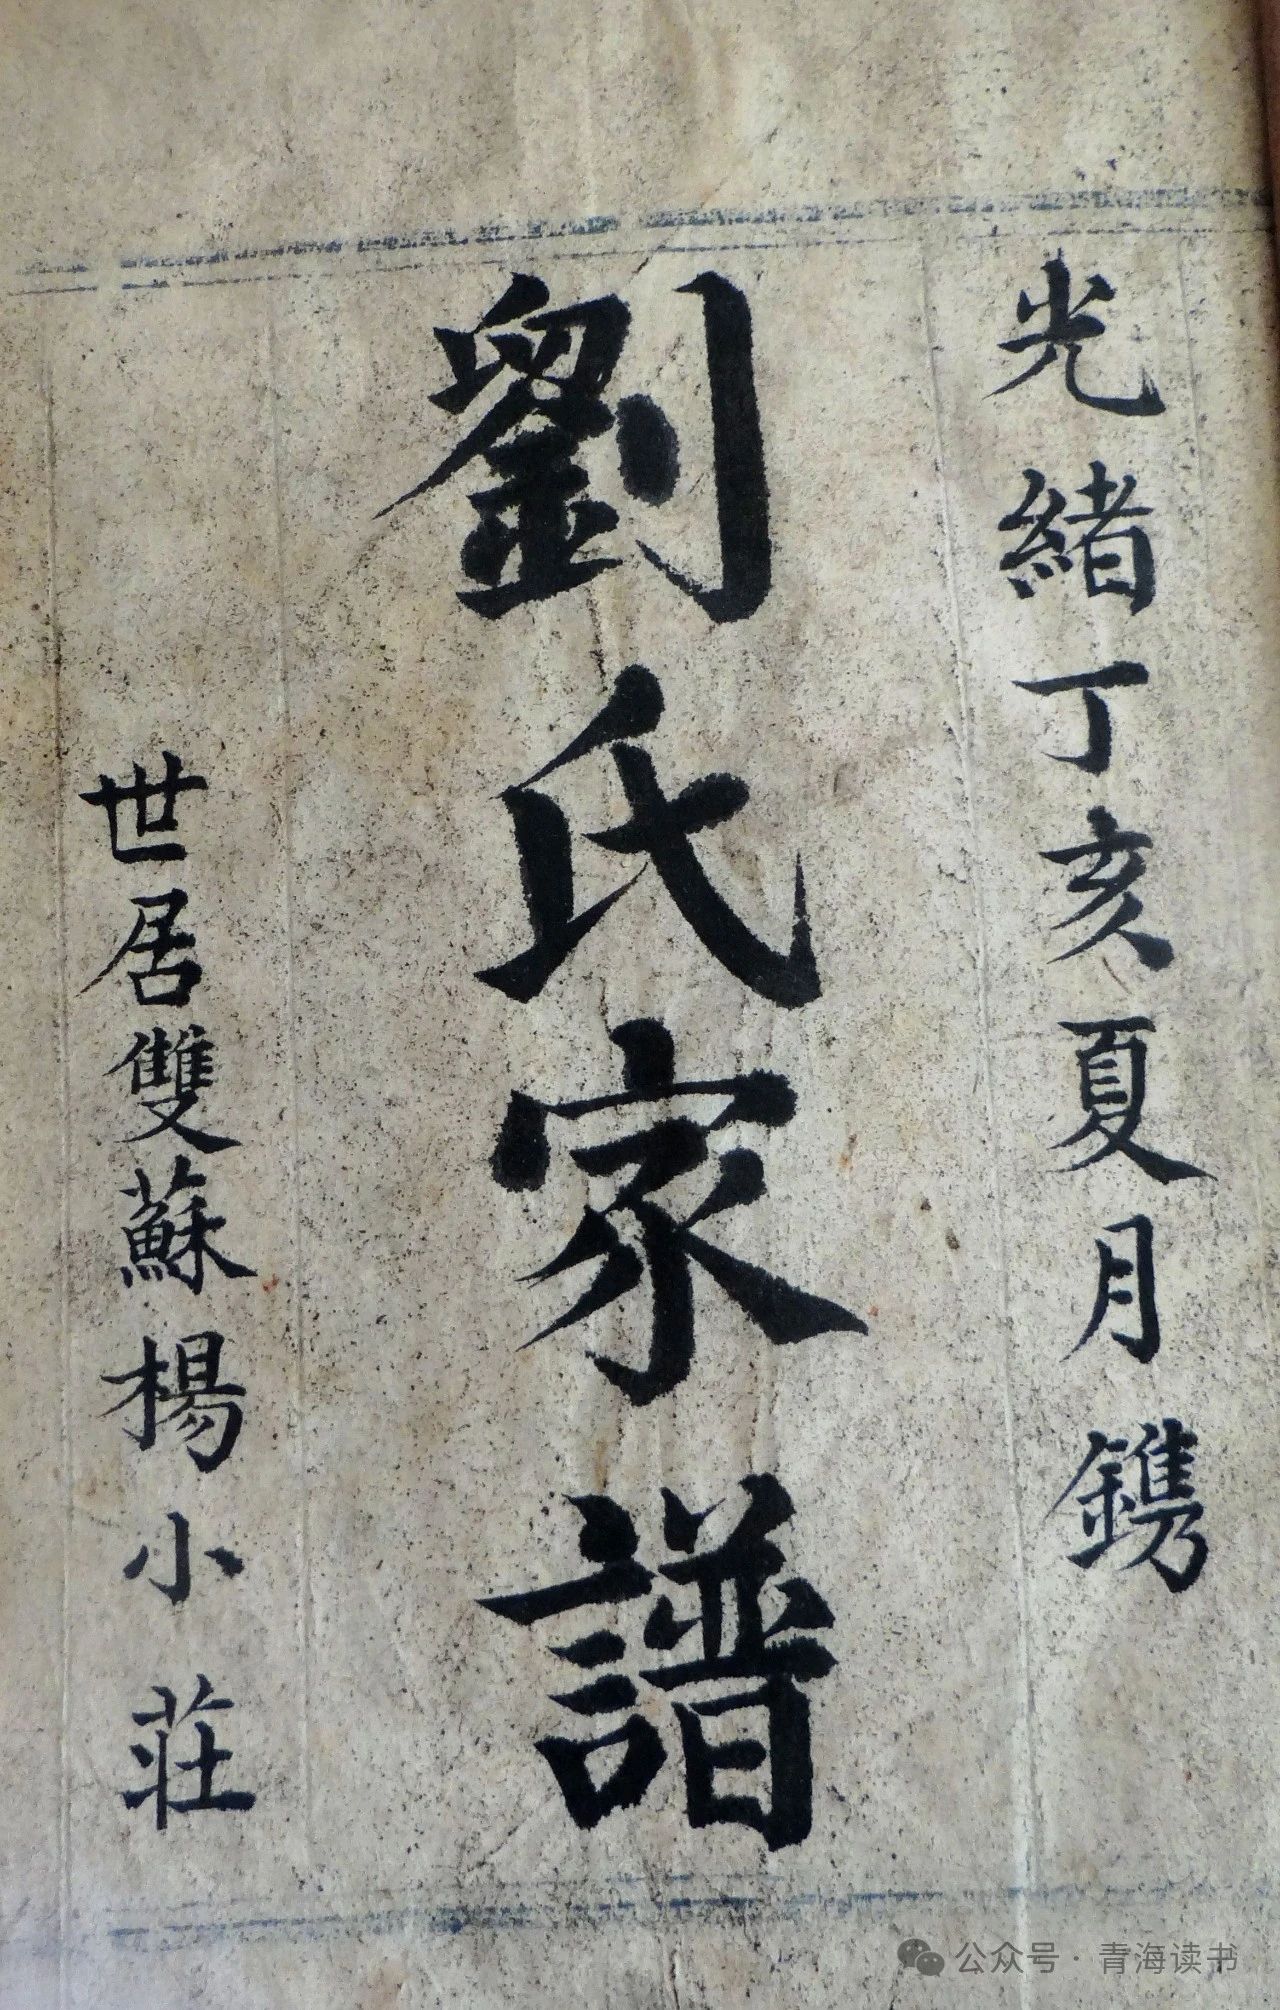 光緒丁亥夏月鐫
劉氏家譜
世居雙蘇楊小莊
公众号·青海读书